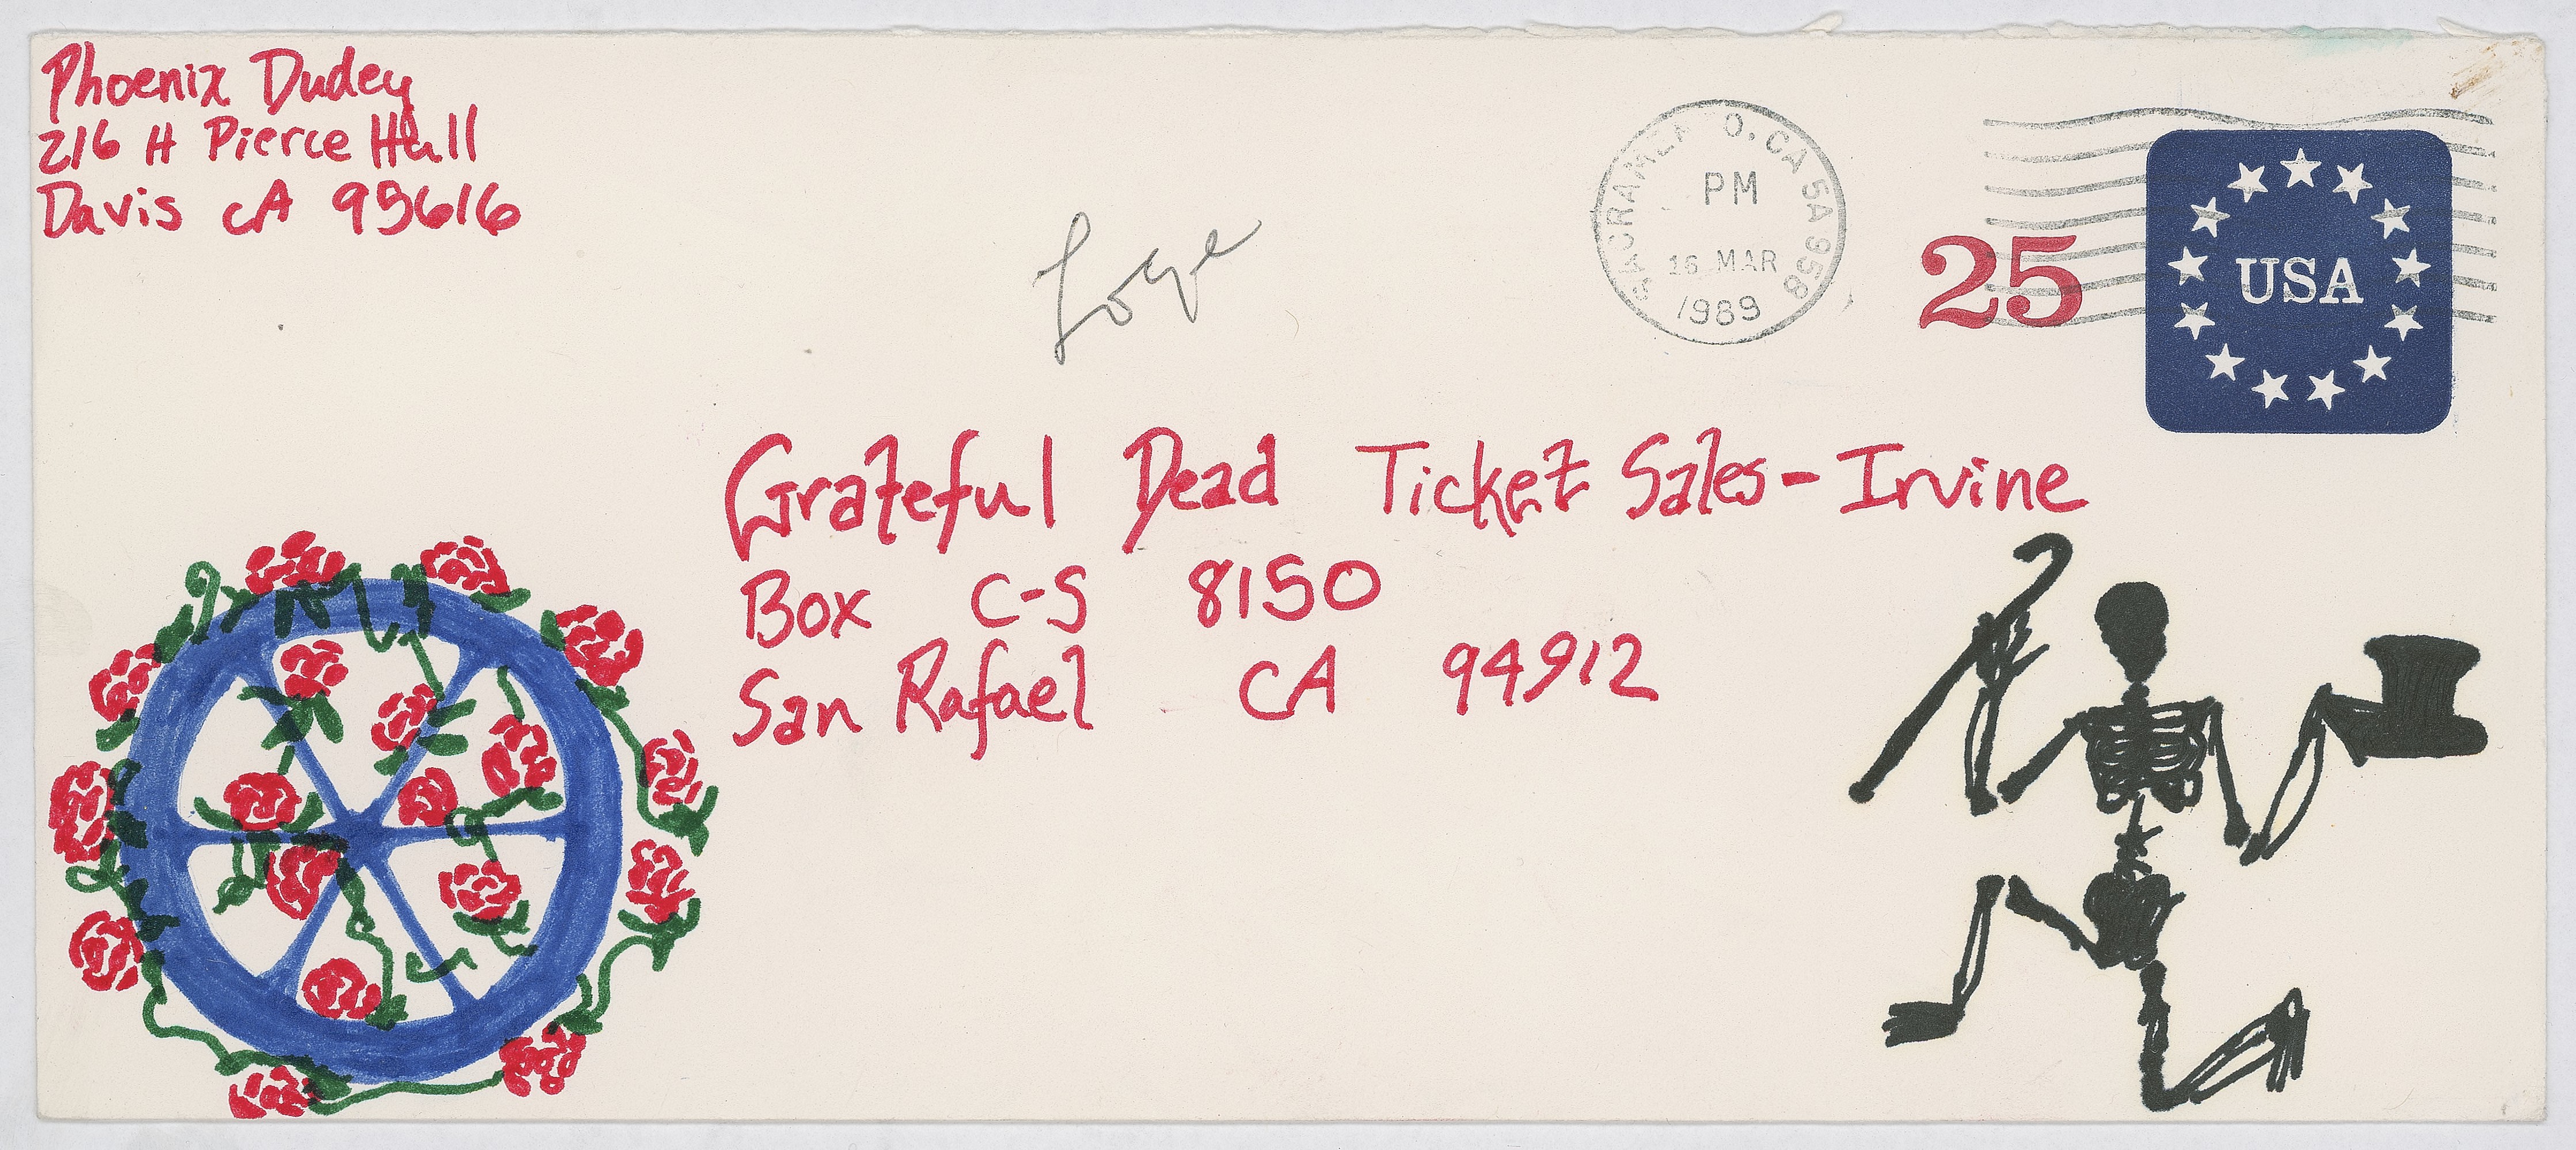 Phoenix Dudey
216 H Pierce Hall
Davis CA 95616
Loge
SACRAMENTO, CA 5A 958
PM
16 MAR
1989
25
USA
Grateful Dead Ticket Sales - Irvine
Box C-S 8150
San Rafael CA 94912